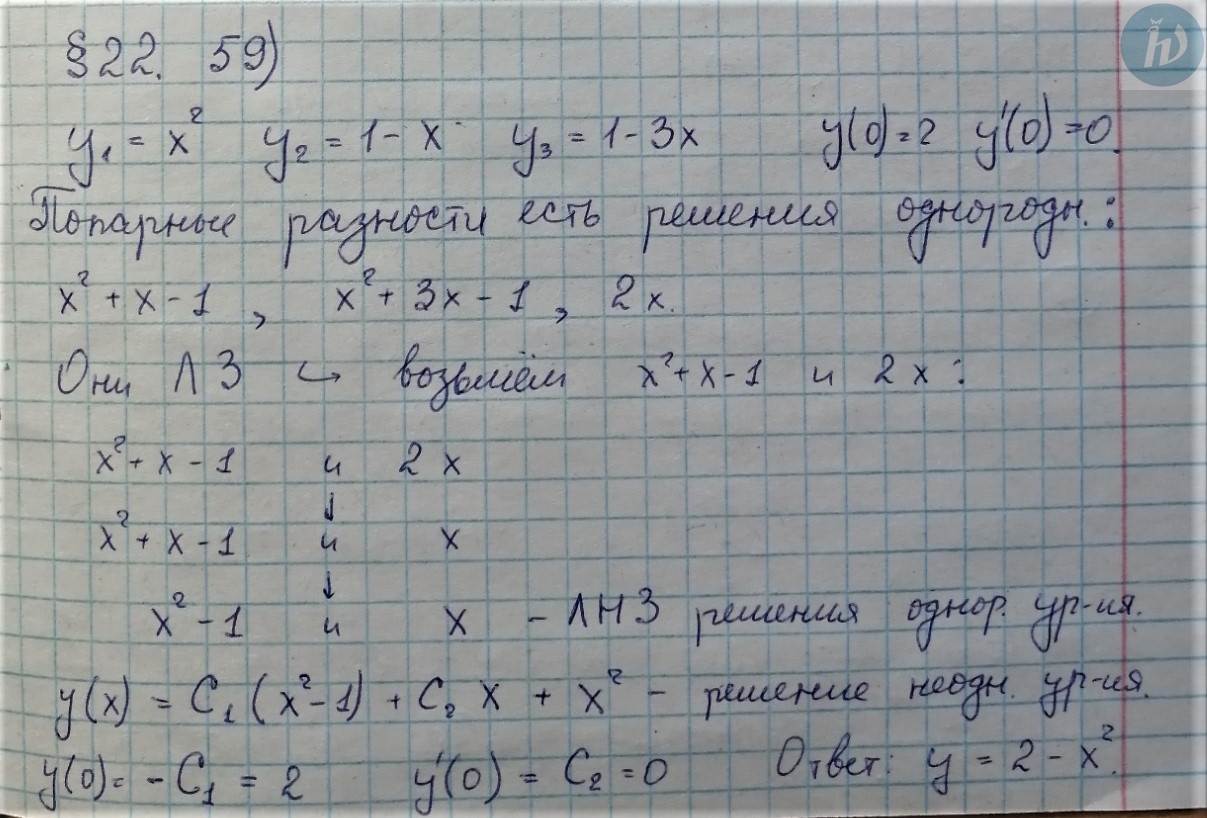 §22. 59)
y₁ = x² y₂ = 1 - x y₃ = 1 - 3x y(0) = 2 y'(0) = 0.
Попарные разности есть решения однородн.:
x² + x - 1, x² + 3x - 1, 2x.
Они ЛЗ ↪ возьмём x² + x - 1 и 2x:
x² + x - 1 и 2x
↓
x² + x - 1 и x
↓
x² - 1 и x - ЛНЗ решения однор. ур-ия.
y(x) = C₁(x² - 1) + C₂ x + x² - решение неодн. ур-ия.
y(0) = -C₁ = 2 y'(0) = C₂ = 0 Ответ: y = 2 - x².